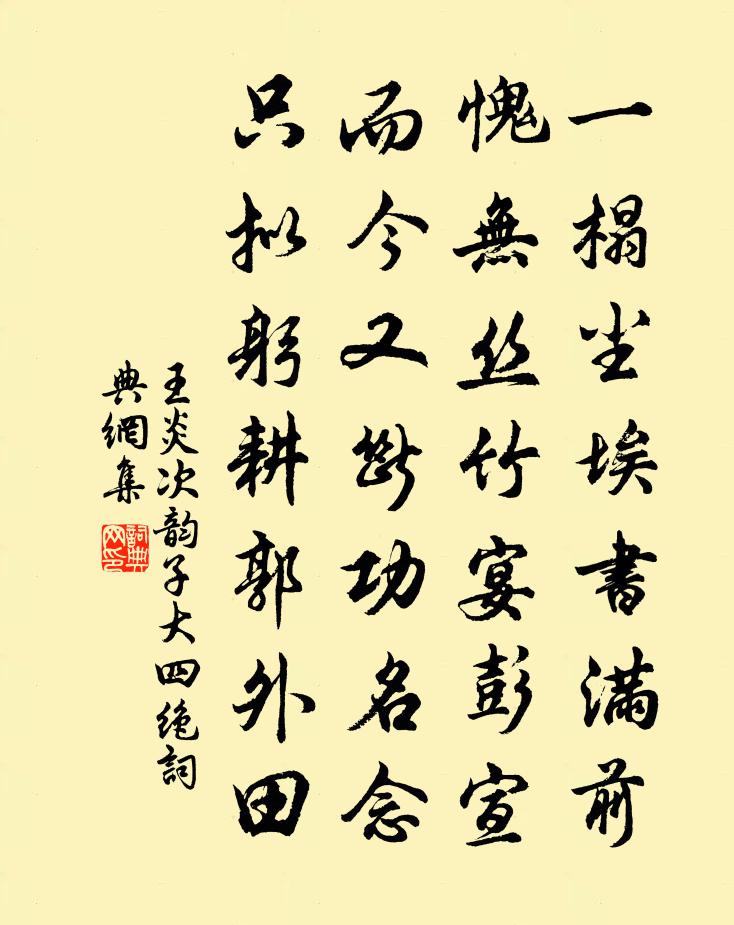 一榻尘埃書满前
愧無丝竹宴彭宣
而今又断功名念
只拟躬耕郭外田
王炎次韵子大四绝詞
典網集
詞典
网印